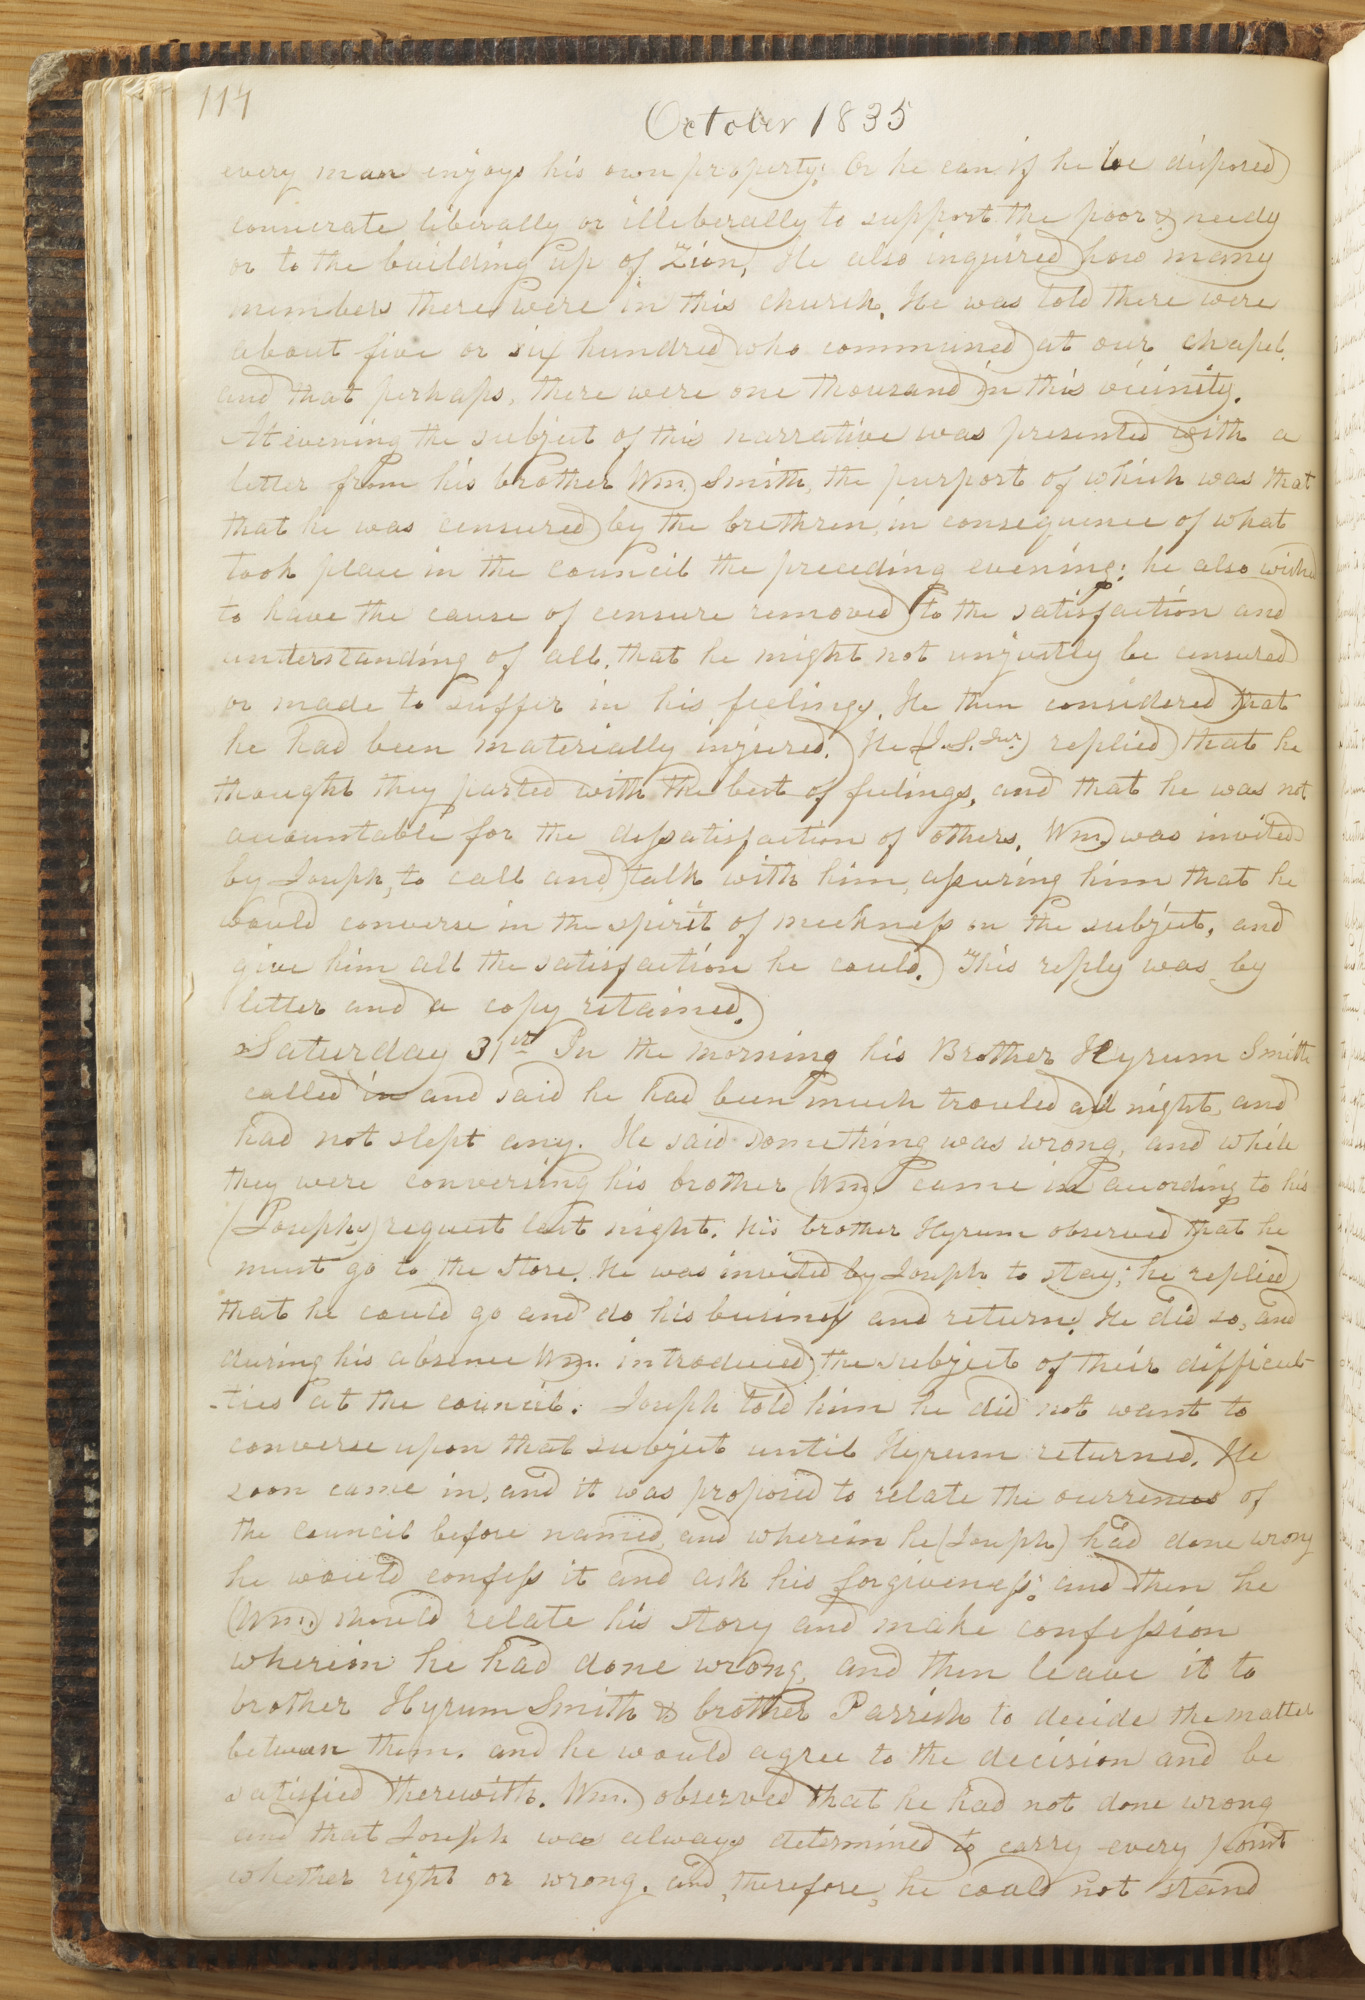 114
October 1835
every man enjoys his own property; Or he can if he be disposed
consecrate liberally or illiberally to support the poor & needy
or to the building up of Zion, He also inquired how many
members there were in this church, He was told there were
about five or six hundred who communed at our chapel,
and that perhaps, there were one thousand in this vicinity.
At evening the subject of this narrative was presented with a
letter from his brother Wm. Smith, the purport of which was that
that he was censured by the brethren, in consequence of what
took place in the council the preceding evening; he also wished
to have the cause of censure removed to the satisfaction and
understanding of all, that he might not unjustly be censured
or made to suffer in his feelings, He then considered that
he had been materially injured. He (J. S. Jur.) replied that he
thought they parted with the best of feelings, and that he was not
accountable for the dissatisfaction of others, Wm. was invited
by Joseph, to call and talk with him, assuring him that he
would converse in the spirit of meekness on the subject, and
give him all the satisfaction he could. This reply was by
letter and a copy retained.
Saturday 31st In the morning his Brother Hyrum Smith
called in and said he had been much trouled all night, and
had not slept any. He said something was wrong, and while
they were conversing his brother Wm. came in according to his
(Josephs) request last night. His brother Hyrum observed that he
must go to the store. He was invited by Joseph to stay; he replied
that he could go and do his business and return. He did so, and
during his absence Wm. introduced the subject of their difficul-
-ties at the council. Joseph told him he did not want to
converse upon that subject until Hyrum returned. He
soon came in, and it was proposed to relate the ourrences of
the council before named, and wherein he (Joseph) had done wrong
he would confess it and ask his forgiveness; and then he
(Wm.) should relate his story and make confession
wherein he had done wrong, and then leave it to
brother Hyrum Smith & brother Parrish to decide the matter
between them. and he would agree to the decision and be
satisfied therewith. Wm. observed that he had not done wrong
and that Joseph was always determined to carry every point
whether right or wrong, and, therefore, he could not stand